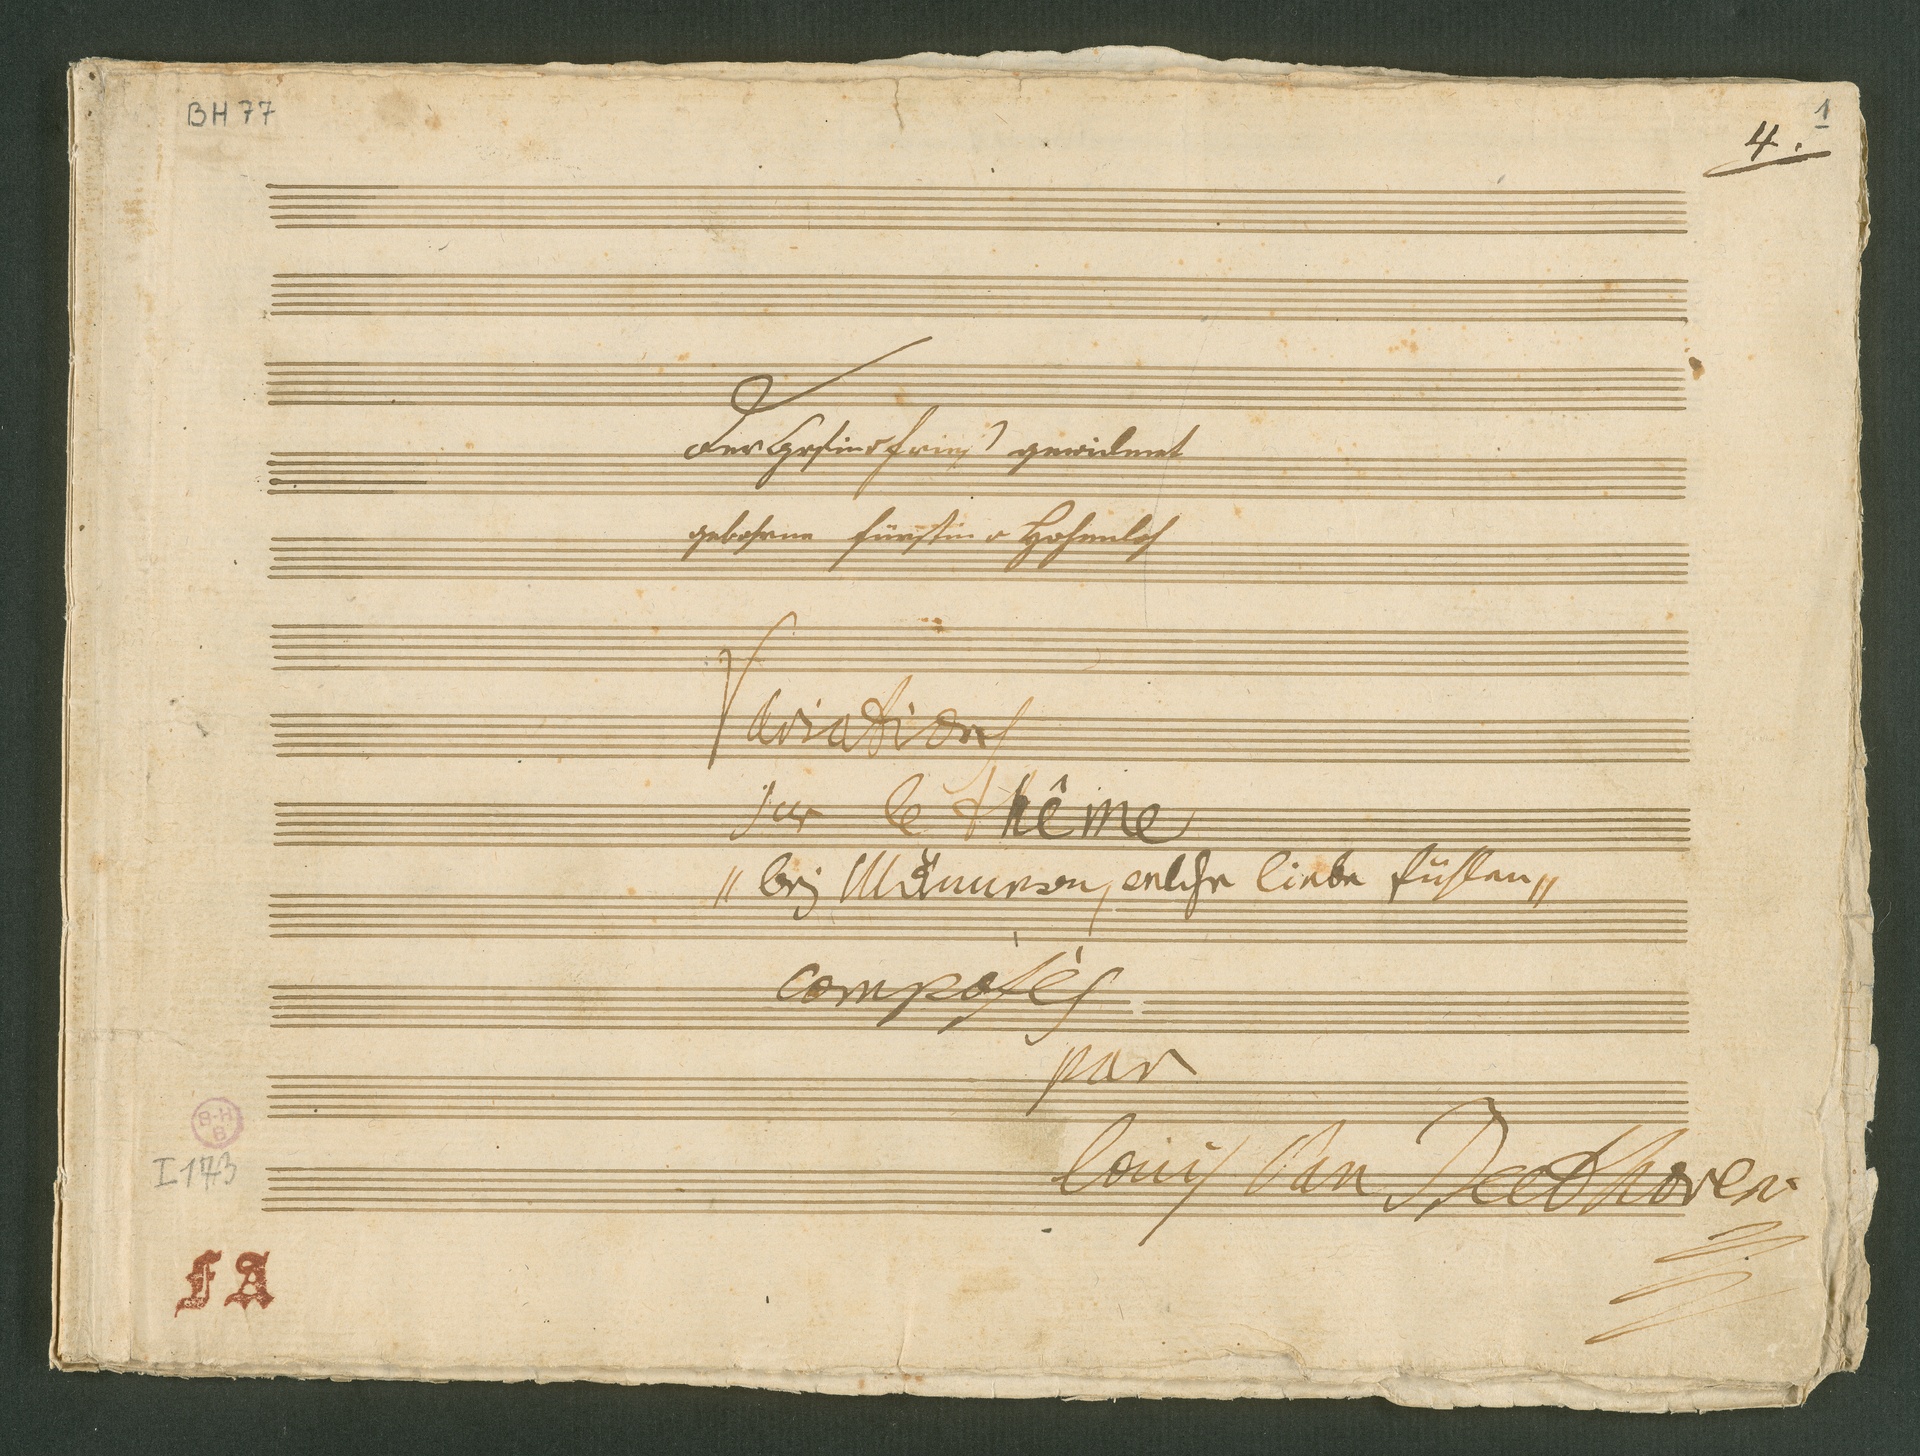 BH 77
1
4.
der Gräfin Fries gewidmet
gebohrne fürstin v Hohenloh
Variations
sur le thême
„bej Männern, welche liebe fühlen„
composés
par
louis van Beethoven
B-H
B
I 173
F A